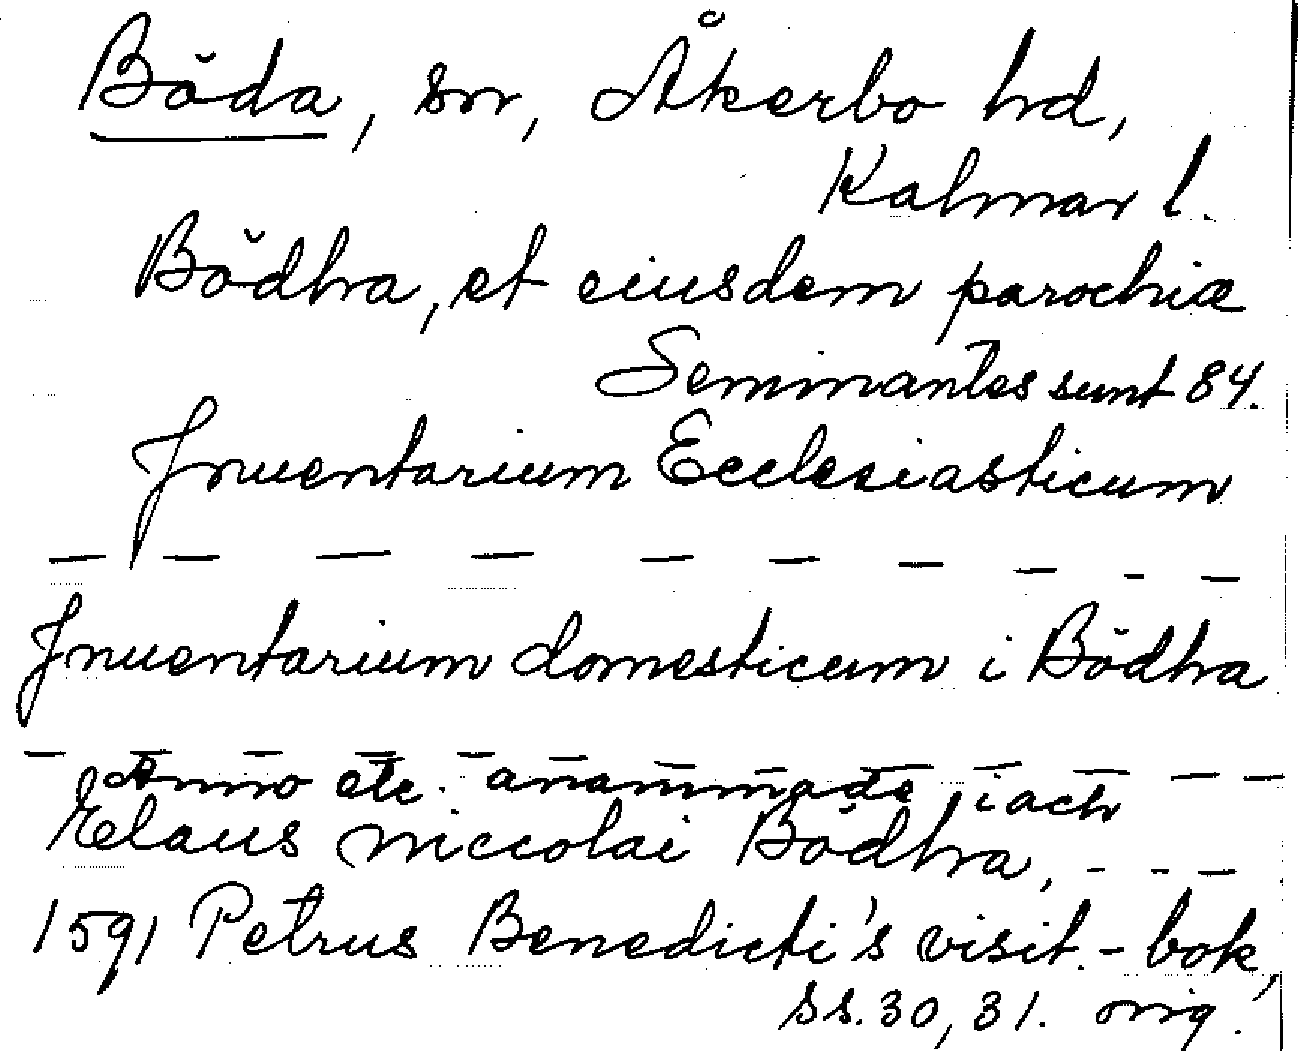 Böda, sn, Åkerbo hd,
Kalmar l.
Bödha, et eiusdem parochiæ
Seminantes sunt 84.
Jnuentarium Ecclesiasticum
— — — — — — — — — —
Jnuentarium domesticum i Bödha
— — — — — — — — — — — —
Anno etc. anammade iach
Elaus Niccolai Bödha, - - -
1591 Petrus Benedicti's visit.-bok,
ss. 30, 31. orig.